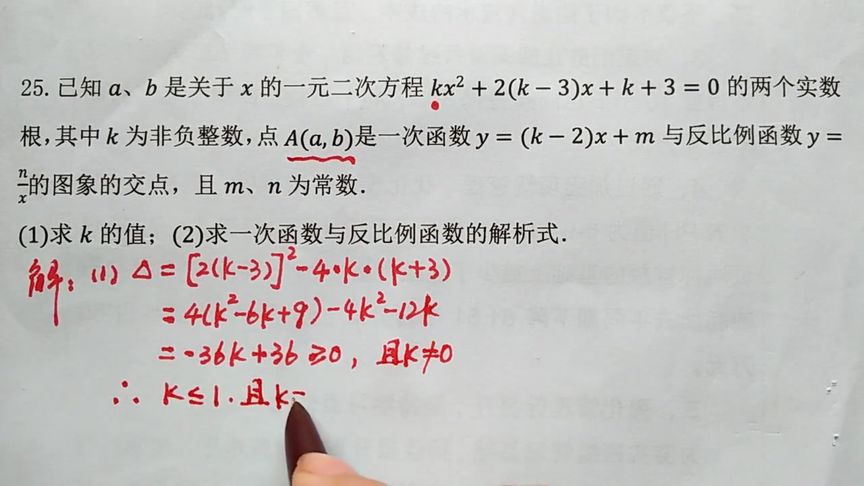 25. 已知 a、b 是关于 x 的一元二次方程 kx² + 2(k − 3)x + k + 3 = 0 的两个实数
根，其中 k 为非负整数，点 A(a, b)是一次函数 y = (k − 2)x + m 与反比例函数 y =
n/x的图象的交点，且 m、n 为常数．
(1)求 k 的值；(2)求一次函数与反比例函数的解析式．
解：(1) Δ = [2(k-3)]² - 4·k·(k+3)
= 4(k²-6k+9) - 4k² - 12k
= -36k + 36 ≥ 0，且k≠0
∴ k ≤ 1．且k